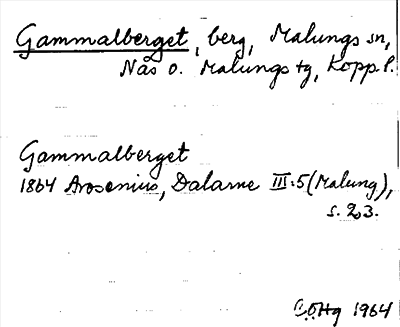 Gammalberget, berg, Malungs sn,
Näs o. Malungs tg, Kopp. l.
Gammalberget
1864 Arosenius, Dalarne III:5 (Malung),
s. 23.
CÖHg 1964